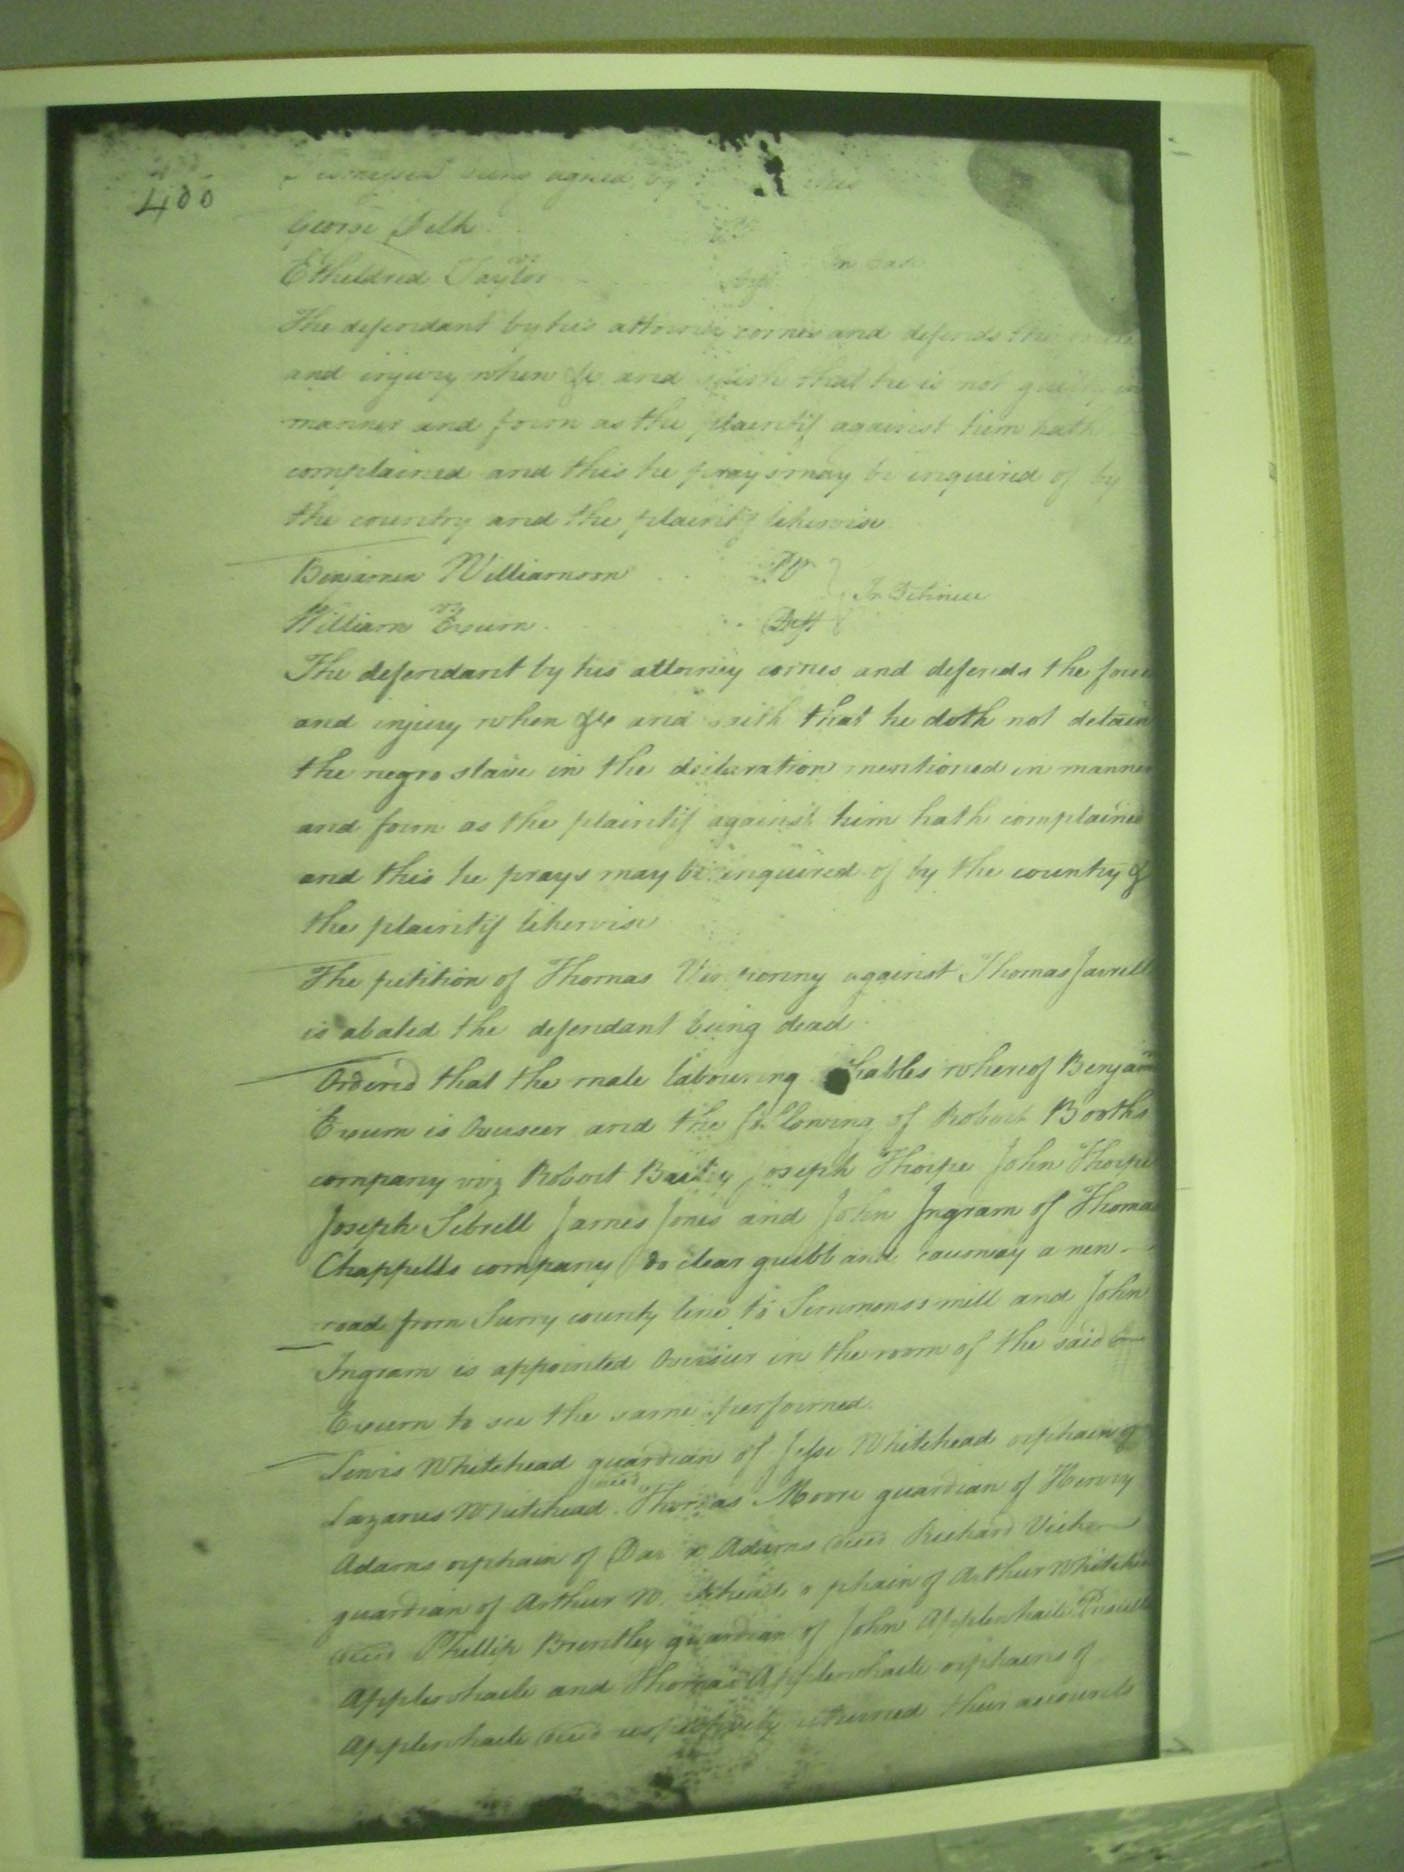 400
being agreed by
George Delk
vs
Etheldred Taylor
In Case
The defendant by his attorney comes and defends the
and injury when &c and saith that he is not guilty in
manner and form as the plaintif against him hath
complained and this he prays may be inquired of by
the country and the plaintif likewise
Benjamin Williamson Plt
vs In Detinue
William Exum Deft
The defendant by his attorney comes and defends the force
and injury when &c and saith that he doth not detain
the negro slave in the declaration mentioned in manner
and form as the plaintif against him hath complained
and this he prays may be inquired of by the country &
the plaintif likewise
The petition of Thomas against Thomas Jarrell
is abated the defendant being dead
Ordered that the male labouring whereof Benjam
Exum is Overseer and the following of Robert Booths
company viz Robert Bailey Joseph Thorpe John Thorpe
Joseph Sebrell James Jones and John Ingram of Thomas
Chappells company do clear grubb and causway a new
road from Surry county line to Simmonss mill and John
Ingram is appointed Overseer in the room of the said
Exum to see the same performed
Lewis Whitehead guardian of Jesse Whitehead orphain of
Lazarus Whitehead decd Thomas Moore guardian of Henry
Adams orphain of Adams decd Richard Vick
guardian of Arthur Whitehead orphain of Arthur Whitehead
decd Phillip Brantley guardian of John Applewhaite
Applewhaite and Thomas Applewhaite orphains of
Applewhaite decd respectively returned their accounts